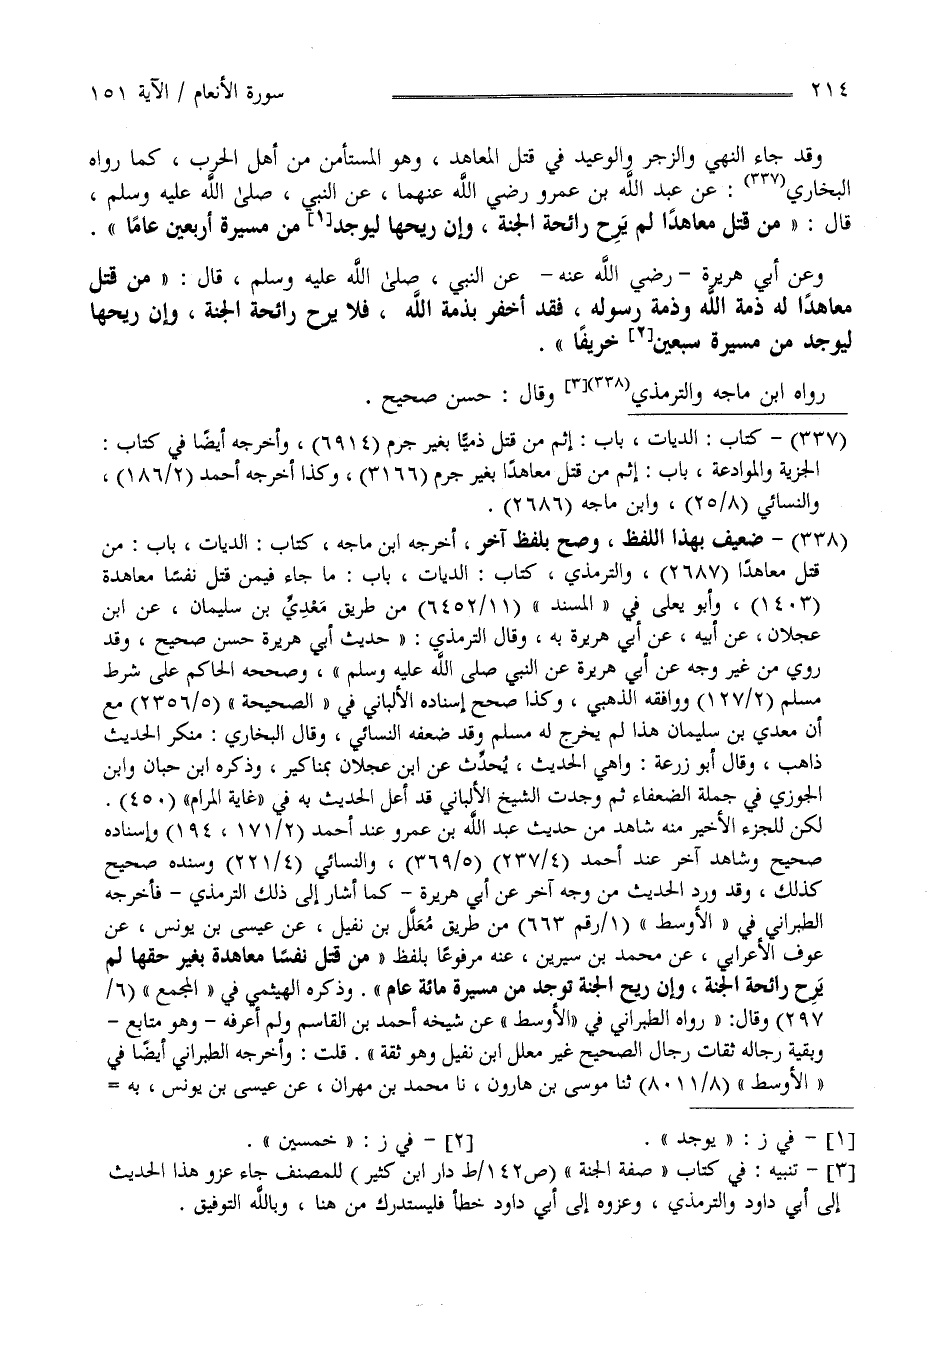 ٢١٤ سورة الأنعام / الآية ١٥١
وقد جاء النهي والزجر والوعيد في قتل المعاهد ، وهو المستأمن من أهل الحرب ، كما رواه
البخاري(٣٣٧) : عن عبد الله بن عمرو رضي الله عنهما ، عن النبي ، صلىٰ الله عليه وسلم ،
قال : « من قتل معاهدًا لم يَرِح رائحة الجنة ، وإن ريحها ليوجد[١] من مسيرة أربعين عامًا » .
وعن أبي هريرة - رضي الله عنه - عن النبي ، صلىٰ الله عليه وسلم ، قال : « من قتل
معاهدًا له ذمة الله وذمة رسوله ، فقد أخفر بذمة الله ، فلا يرح رائحة الجنة ، وإن ريحها
ليوجد من مسيرة سبعين[٢] خريفًا » .
رواه ابن ماجه والترمذي(٣٣٨)[٣] وقال : حسن صحيح .
(٣٣٧) - كتاب : الديات ، باب : إثم من قتل ذميًّا بغير جرم (٦٩١٤) ، وأخرجه أيضًا في كتاب :
الجزية والموادعة ، باب : إثم من قتل معاهدًا بغير جرم (٣١٦٦) ، وكذا أخرجه أحمد (١٨٦/٢) ،
والنسائي (٢٥/٨) ، وابن ماجه (٢٦٨٦) .
(٣٣٨) - ضعيف بهذا اللفظ ، وصح بلفظ آخر ، أخرجه ابن ماجه ، كتاب : الديات ، باب : من
قتل معاهدًا (٢٦٨٧) ، والترمذي ، كتاب : الديات ، باب : ما جاء فيمن قتل نفسًا معاهدة
(١٤٠٣) ، وأبو يعلى في « المسند » (٦٤٥٢/١١) من طريق مَعْدِيِّ بن سليمان ، عن ابن
عجلان ، عن أبيه ، عن أبي هريرة به ، وقال الترمذي : « حديث أبي هريرة حسن صحيح ، وقد
روي من غير وجه عن أبي هريرة عن النبي صلى الله عليه وسلم » ، وصححه الحاكم على شرط
مسلم (١٢٧/٢) ووافقه الذهبي ، وكذا صحح إسناده الألباني في « الصحيحة » (٢٣٥٦/٥) مع
أن معدي بن سليمان هذا لم يخرج له مسلم وقد ضعفه النسائي ، وقال البخاري : منكر الحديث
ذاهب ، وقال أبو زرعة : واهي الحديث ، يُحدِّث عن ابن عجلان بمناكير ، وذكره ابن حبان وابن
الجوزي في جملة الضعفاء ثم وجدت الشيخ الألباني قد أعل الحديث به في «غاية المرام» (٤٥٠) .
لكن للجزء الأخير منه شاهد من حديث عبد الله بن عمرو عند أحمد (١٧١/٢ ، ١٩٤) وإسناده
صحيح وشاهد آخر عند أحمد (٢٣٧/٤) (٣٦٩/٥) ، والنسائي (٢٢١/٤) وسنده صحيح
كذلك ، وقد ورد الحديث من وجه آخر عن أبي هريرة - كما أشار إلى ذلك الترمذي - فأخرجه
الطبراني في « الأوسط » (١/رقم ٦٦٣) من طريق مُعَلَّل بن نفيل ، عن عيسى بن يونس ، عن
عوف الأعرابي ، عن محمد بن سيرين ، عنه مرفوعًا بلفظ « من قتل نفسًا معاهدة بغير حقها لم
يَرِح رائحة الجنة ، وإن ريح الجنة توجد من مسيرة مائة عام » . وذكره الهيثمي في « المجمع » (٦/
٢٩٧) وقال: « رواه الطبراني في «الأوسط» عن شيخه أحمد بن القاسم ولم أعرفه - وهو متابع -
وبقية رجاله ثقات رجال الصحيح غير معلل ابن نفيل وهو ثقة » . قلت : وأخرجه الطبراني أيضًا في
« الأوسط » (٨٠١١/٨) ثنا موسى بن هارون ، نا محمد بن مهران ، عن عيسى بن يونس ، به =
[١] - في ز : « يوجد » . [٢] - في ز : « خمسين » .
[٣] - تنبيه : في كتاب « صفة الجنة » (ص١٤٢/ط دار ابن كثير ) للمصنف جاء عزو هذا الحديث
إلى أبي داود والترمذي ، وعزوه إلى أبي داود خطأ فليستدرك من هنا ، وبالله التوفيق .